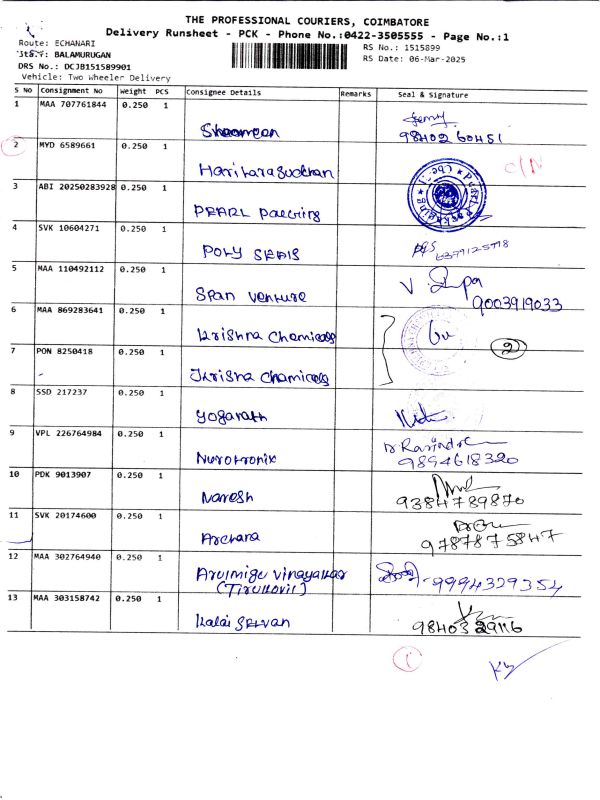 THE PROFESSIONAL COURIERS, COIMBATORE
Delivery Runsheet - PCK - Phone No.:0422-3505555 - Page No.:1
Route: ECHANARI
BALAMURUGAN
DRS No.: DCJB151589901
Vehicle: Two Wheeler Delivery
RS No.: 1515899
RS Date: 06-Mar-2025
S No Consignment No Weight PCS Consignee Details Remarks Seal & Signature
1 MAA 707761844 0.250 1
98402 60451
2 MYD 6589661 0.250 1 Hariharasudhan C/N
3 ABI 20250283928 0.250 1 PEARL Packing
4 SVK 10604271 0.250 1 POLY SEALS
5 MAA 110492112 0.250 1 Span venture
9003919033
6 MAA 869283641 0.250 1 Krishna Chemicals
2
7 PON 8250418 0.250 1 Krishna Chemicals
8 SSD 217237 0.250 1
9 VPL 226764984 0.250 1 Nurotronix
9894618320
10 PDK 9013907 0.250 1 Naresh
9384789870
11 SVK 20174600 0.250 1 Archana
9787875847
12 MAA 302764940 0.250 1 Arulmigu Vinayakar
(Tirukovil) 9994329354
13 MAA 303158742 0.250 1 Kalai Selvan
9840329116
1